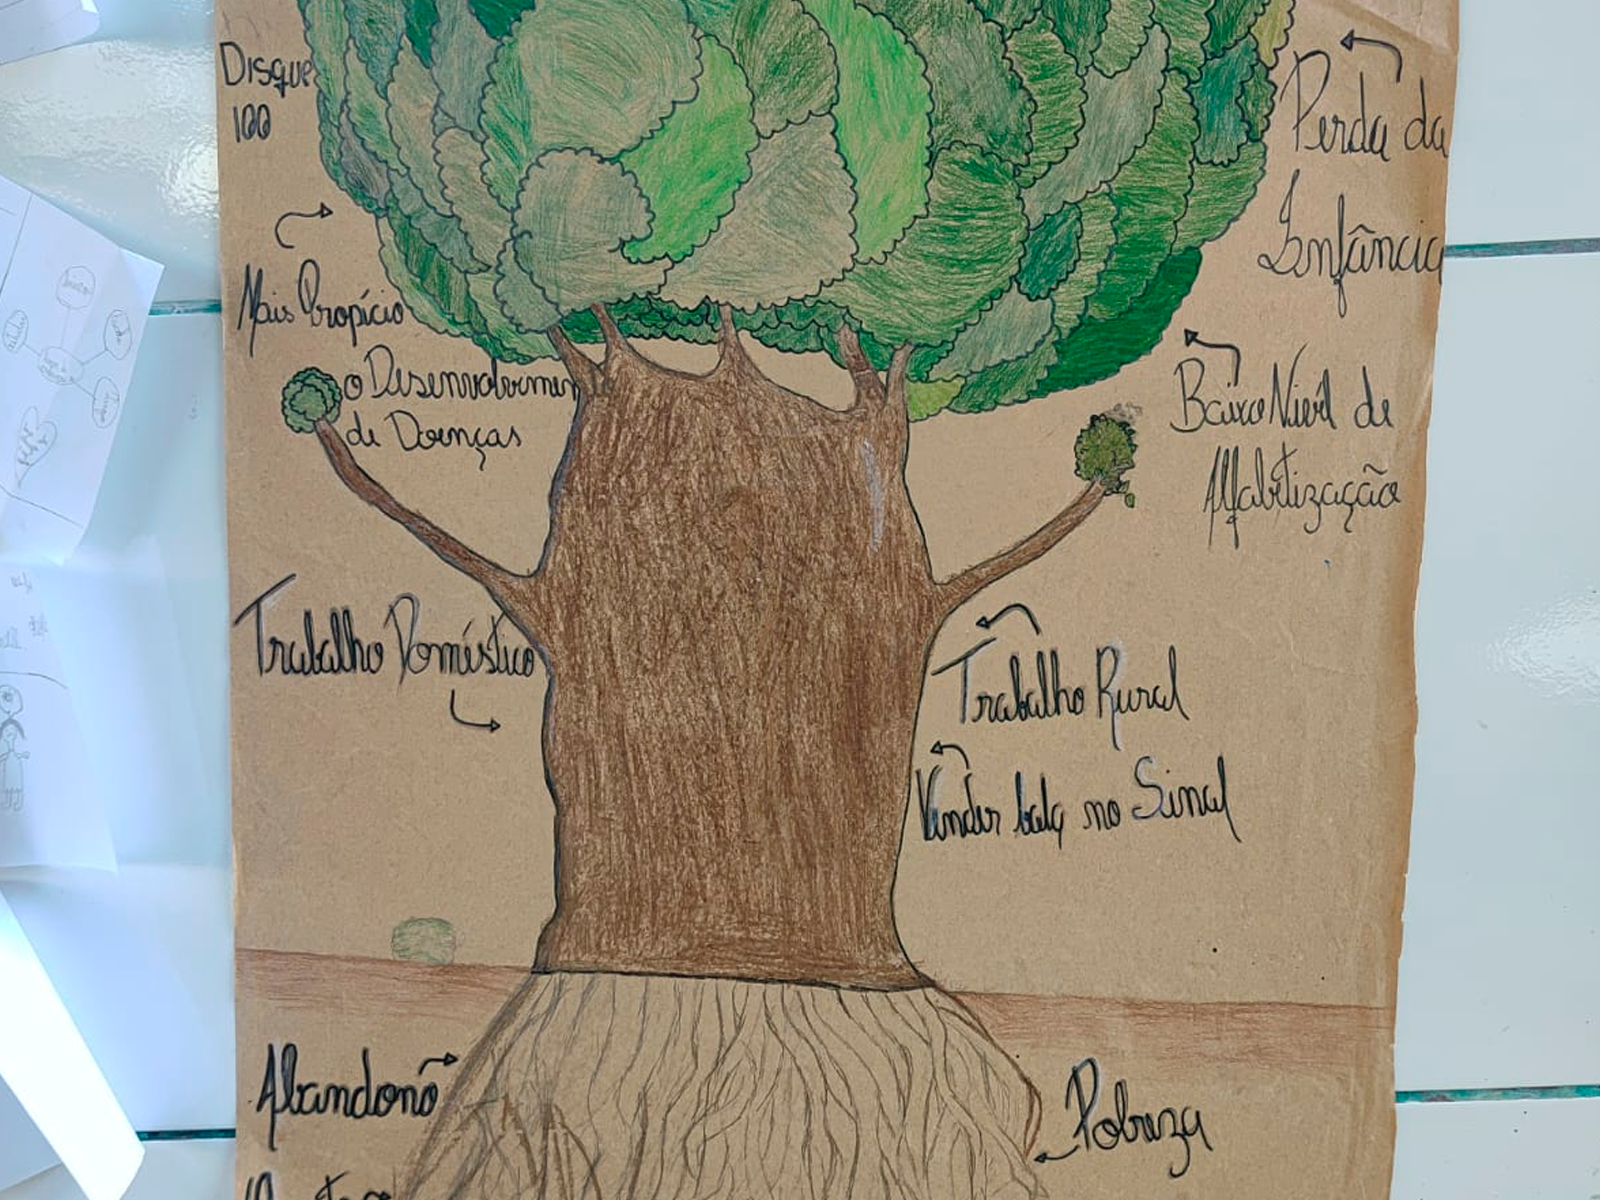 Disque
100
Perda da
Infância
Mais Propício
o Desenvolvimen
de Doenças
Baixo Nivel de
Alfabetização
Trabalho Doméstico
Trabalho Rural
Vender bala no Sinal
Abandono
Pobreza